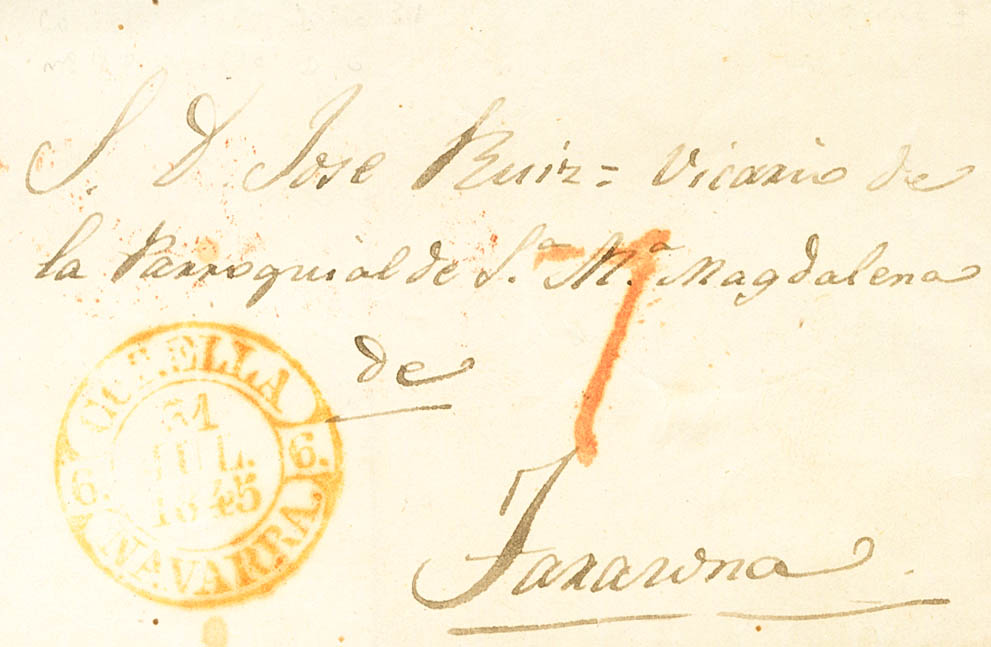 S. D. Jose Ruiz = Vicario de
la Parroquial de S.ª M.ª Magdalena
de
Tarazona
7
CORELLA
31
JUL.
1845
6. 6.
NAVARRA.